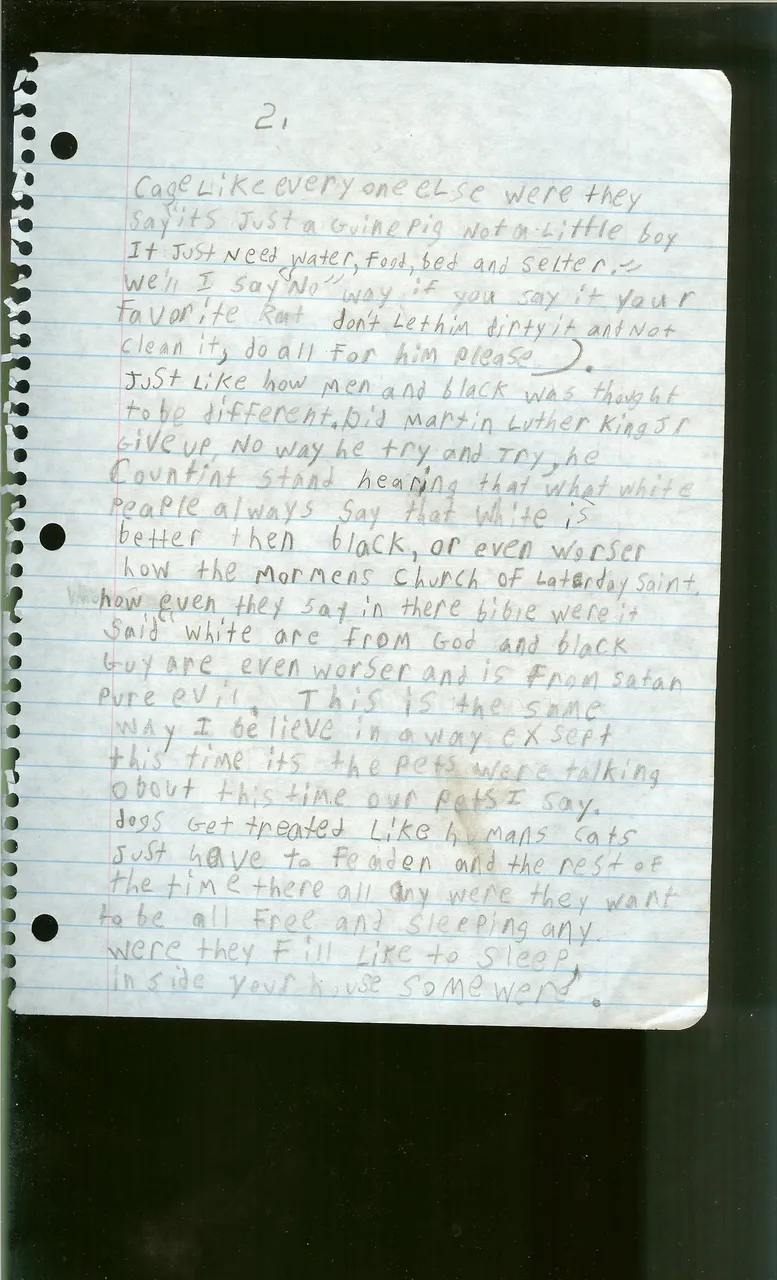 2.
Cage Like every one eLse were they
say its Just a Guine Pig Not a Little boy
It Just Need water, Food, bed and selter."
we'll I say "No" way if you say it your
Favorite Rat don't Let him dirty it and Not
clean it, do all For him please).
Just Like how men and black was thought
to be different. Did Martin Luther King Jr
Give up, No way he try and Try, he
Countint stand hearing that what white
peaple always Say that white is
better then black, or even worser
how the Mormens Church of Laterday Saint.
how even they say in there bible were it
Said "white are From God and black
Guy are even worser and is From satan
pure evil. This is the same
way I believe in a way exsept
this time its the pets were talking
about this time our pets I say.
dogs Get treated Like humans cats
Just have to Feader and the rest oF
the time there all any were they want
to be all Free and sleeping any
were they Fill Like to sleep,
in side your house some were.